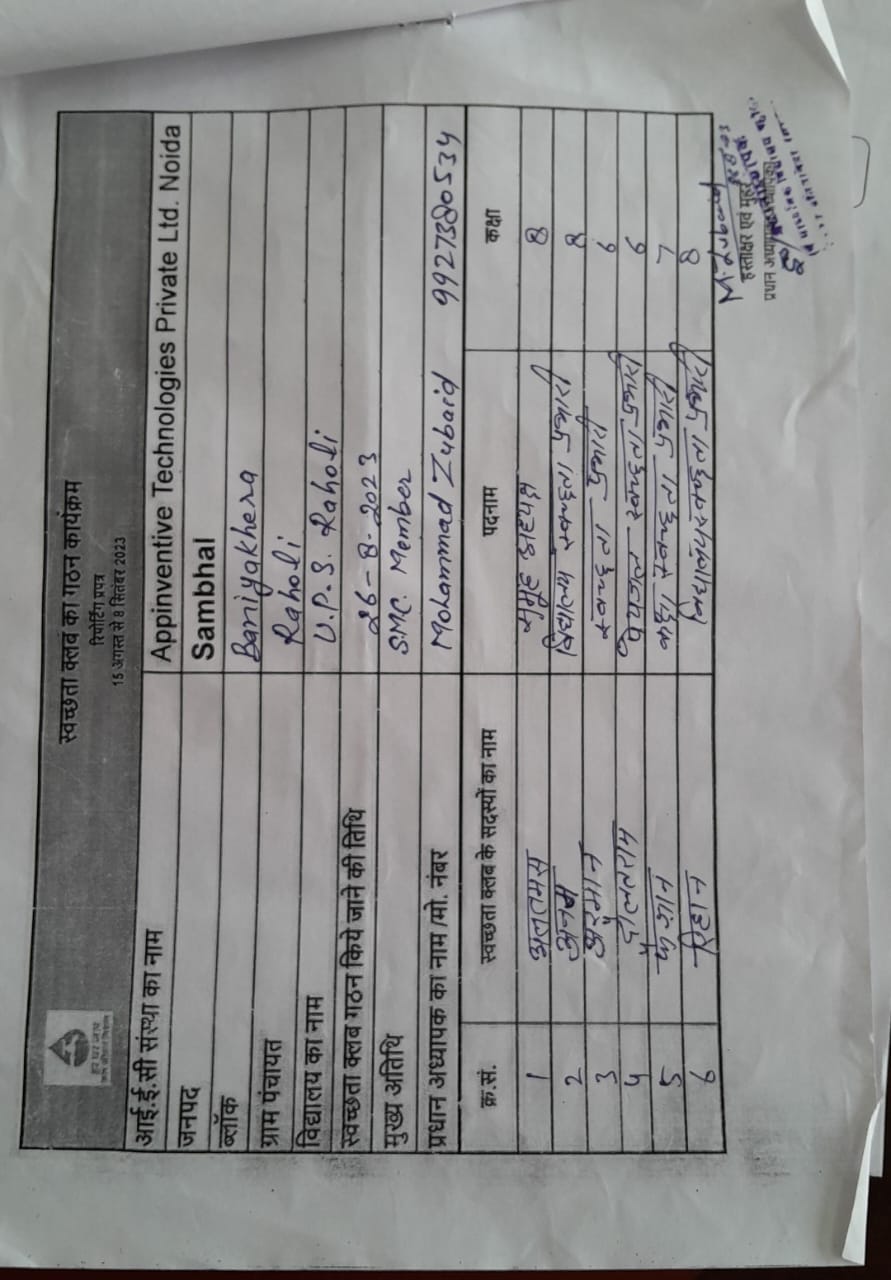 हर घर जल
जल जीवन मिशन
स्वच्छता क्लब का गठन कार्यक्रम
रिपोर्टिंग प्रपत्र
15 अगस्त से 8 सितंबर 2023
आई.ई.सी संस्था का नाम Appinventive Technologies Private Ltd. Noida
जनपद Sambhal
ब्लॉक Baniyakhera
ग्राम पंचायत Raholi
विद्यालय का नाम U.P.S. Raholi
स्वच्छता क्लब गठन किये जाने की तिथि 26-8-2023
मुख्य अतिथि SMC Member
प्रधान अध्यापक का नाम /मो. नंबर Mohammad Zubaid 9927380534
क्र.सं. स्वच्छता क्लब के सदस्यों का नाम पदनाम कक्षा
1 अलतमस समूह अध्यक्ष 8
2 विद्यालय स्वच्छता प्रभारी 8
3 अरमान स्वच्छता प्रभारी 6
4 गुलफ्सा पेयजल स्वच्छता प्रभारी 6
5 फैजान स्वच्छता प्रभारी 7
6 रिहान स्वच्छता प्रभारी 8
हस्ताक्षर एवं मुहर